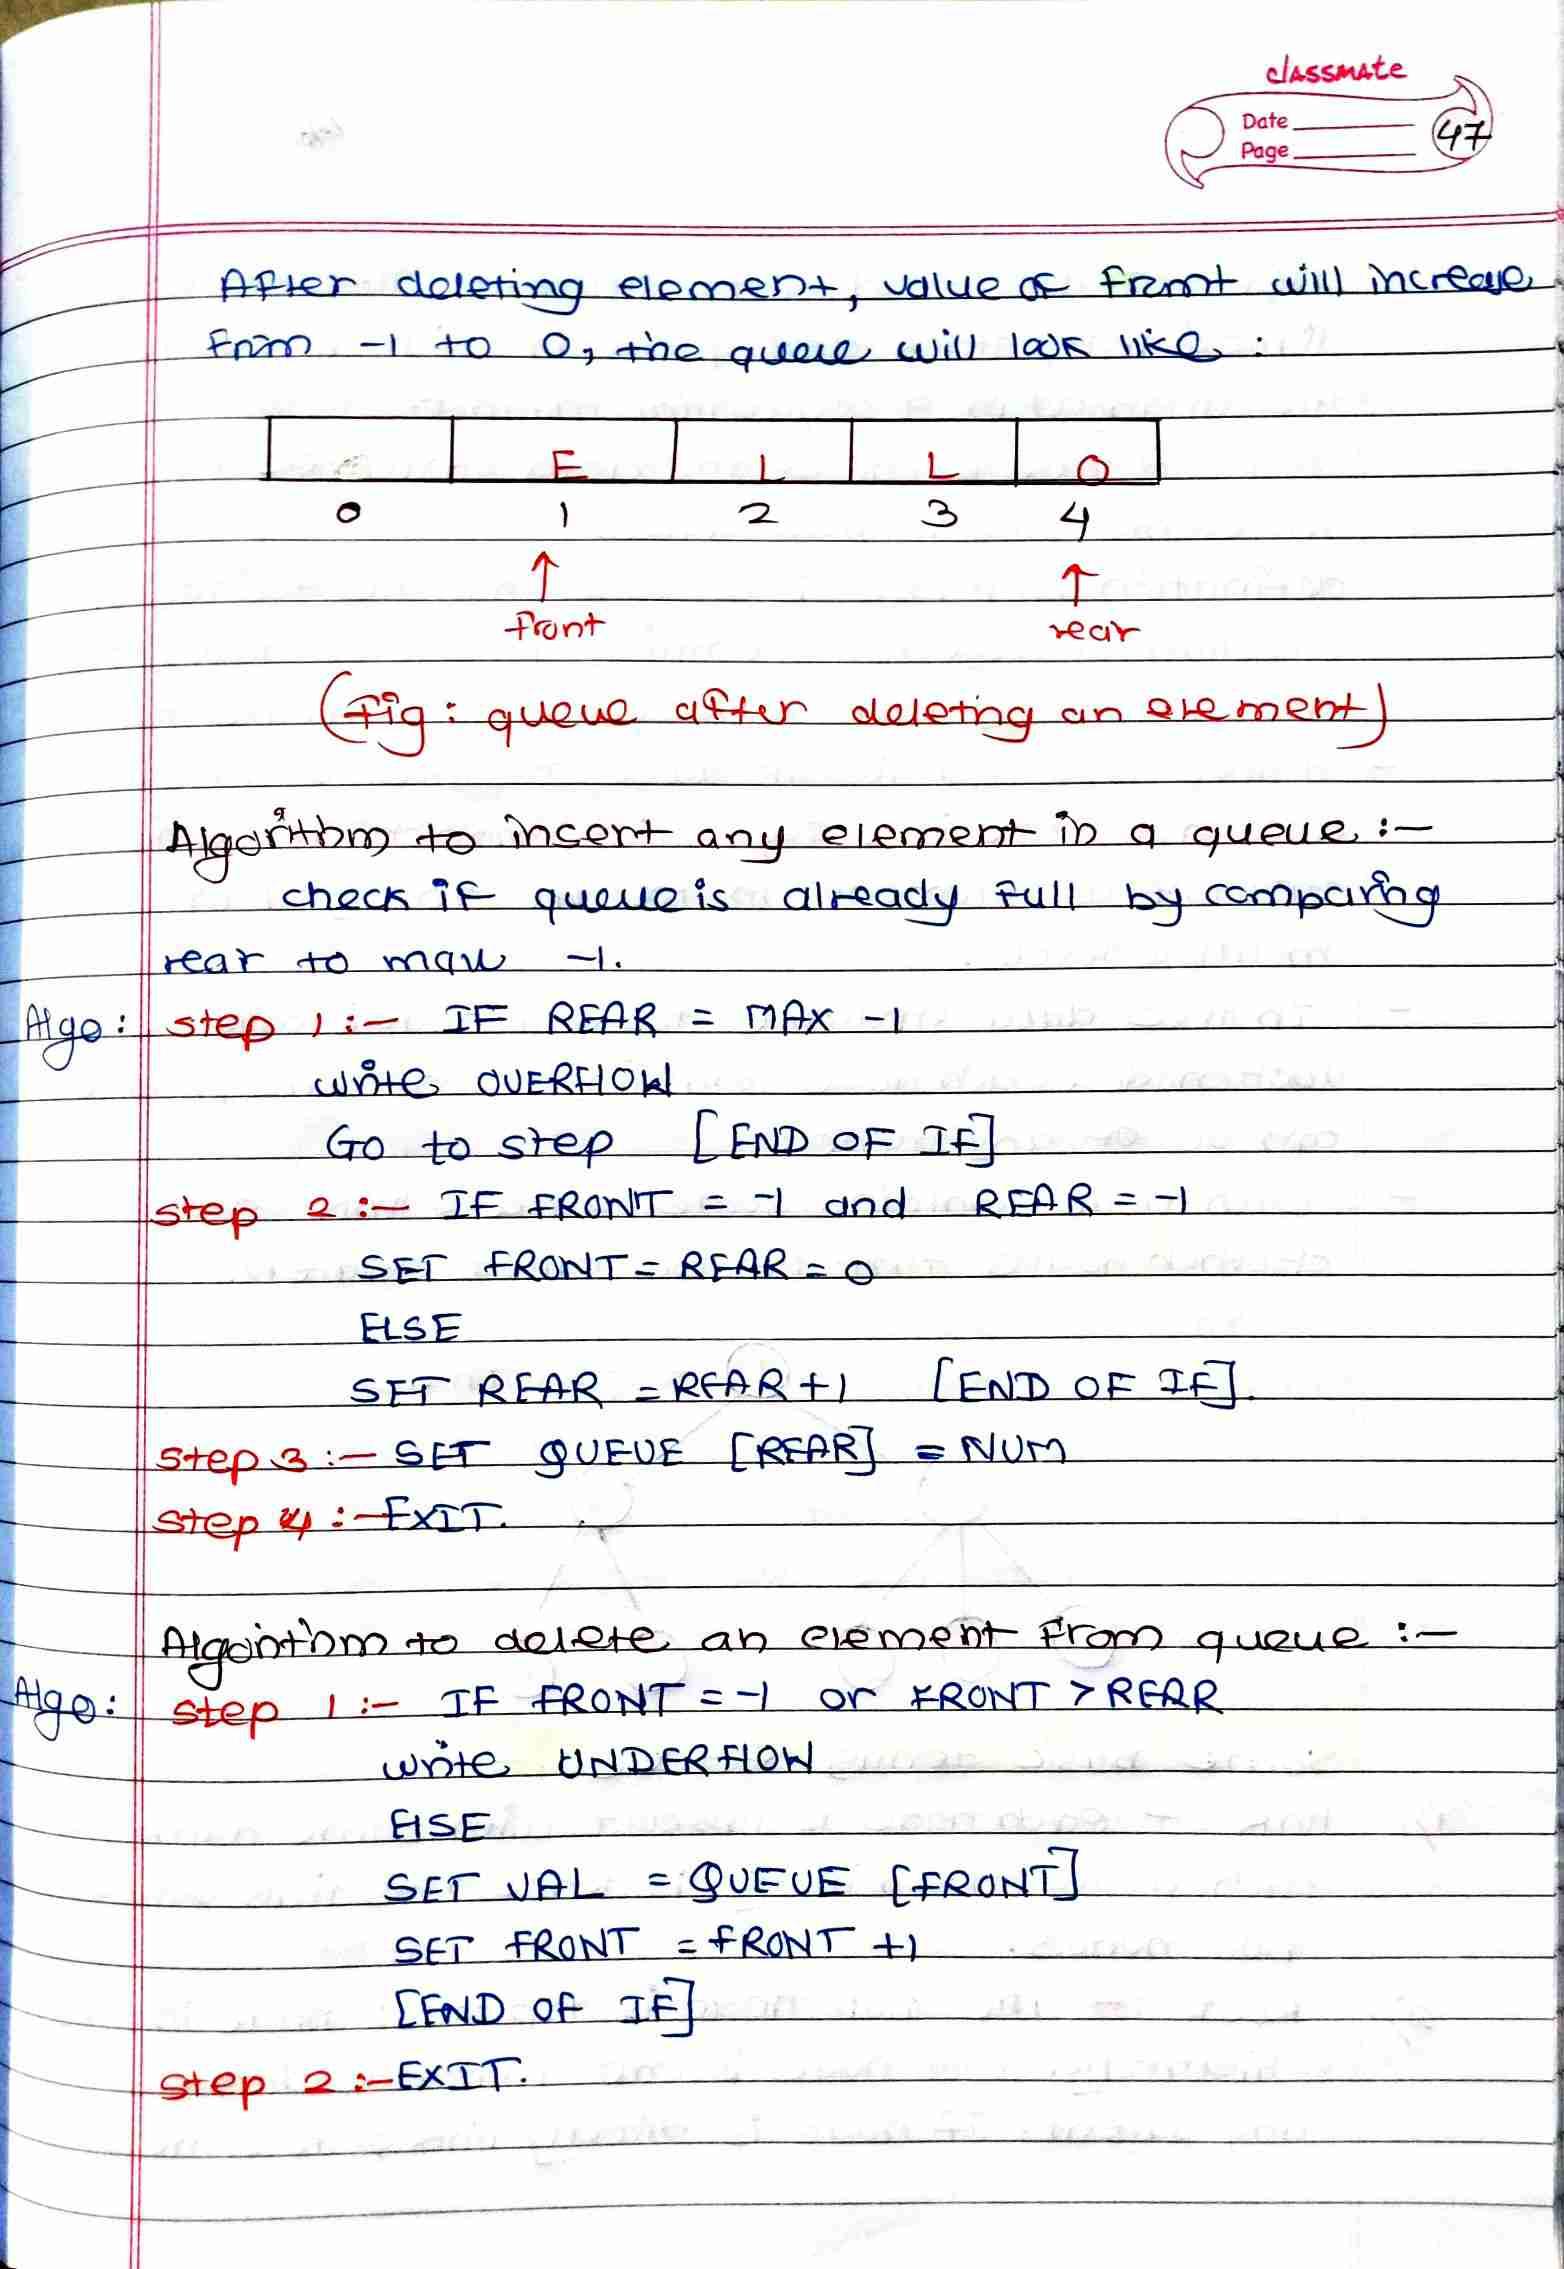 classmate
Date
Page
47
After deleting element, value of front will increase
from -1 to 0, the queue will look like :
E L L O
0 1 2 3 4
↑ ↑
front rear
(fig : queue after deleting an element)
Algorithm to insert any element in a queue :-
check if queue is already full by comparing
rear to max -1.
Algo : step 1 :- IF REAR = MAX -1
write OVERFLOW
Go to step [END OF IF]
step 2 :- IF FRONT = -1 and REAR = -1
SET FRONT = REAR = 0
ELSE
SET REAR = REAR+1 [END OF IF].
step 3 :- SET QUEUE [REAR] = NUM
step 4 :- EXIT.
Algorithm to delete an element from queue :-
Algo : step 1 :- IF FRONT = -1 or FRONT > REAR
write UNDERFLOW
ELSE
SET VAL = QUEUE [FRONT]
SET FRONT = FRONT +1
[END OF IF]
step 2 :- EXIT.